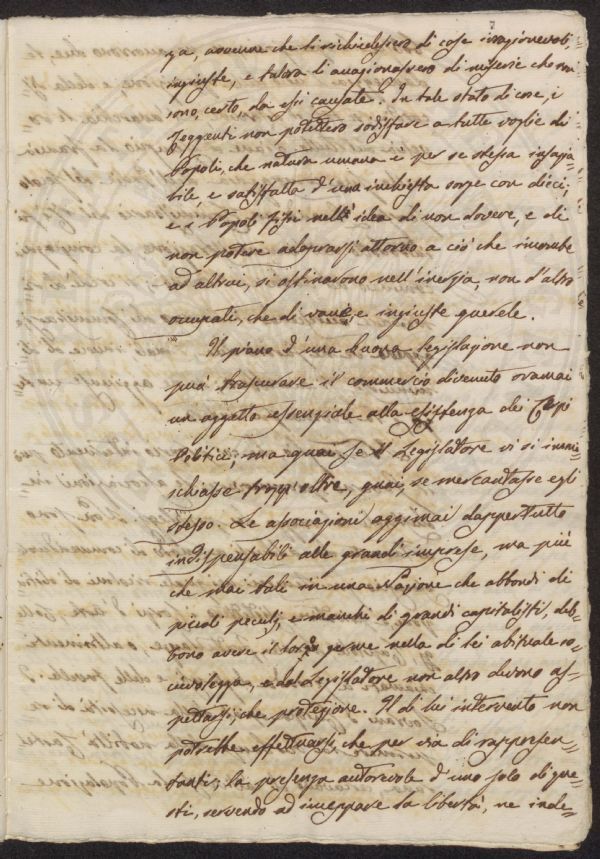 7
za, avvenne che li richiedessero di cose irragionevoli,
ingiuste, e talora li accagionassero di miserie che non
sono, certo, da essi causate. In tale stato di cose, i
Reggenti non potettero sodisfare a tutte voglie di
Popoli, che natura umana è per se stessa insazia-
bile, e satisfatta d'una inchiesta sorge con dieci;
e i Popoli fissi nell'idea di non dovere, e di
non potere adoprarsi attorno a ciò che incombe
ad altrui, si ostinarono nell'inerzia, non d'altro
occupati, che di vane, e ingiuste querele.
Il piano d'una buona legislazione non
può trascurare il commercio divenuto oramai
un oggetto essenziale alla esistenza dei Corpi
Politici, ma guai se il Legislatore vi si immi-
schiasse tropp'oltre, guai, se mercantasse egli
stesso. Le associazioni oggimai dappertutto
indispensabili alle grandi imprese, ma più
che mai tali in una Nazione che abbondi di
piccoli peculj, e manchi di grandi capitalisti, deb-
bono avere il loro germe nella di lei abituale so-
cievolezza, e dal Legislatore non altro devono as-
pettarsi, che protezione. Il di lui intervento non
potrebbe effettuarsi, che per via di rappresen-
tanti; la presenza autorevole d'uno solo di que-
sti, servendo ad inceppare la libertà, ne inde-